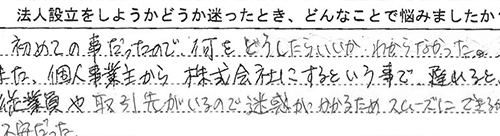 法人設立をしようかどうか迷ったとき、どんなことで悩みましたか
初めての事だったので、何をどうしたらいいか わからなかった。
また、個人事業主から 株式会社にするという事で、遅れると、
従業員や取引先がいるので迷惑がかかるため スムーズに できるか
不安だった。